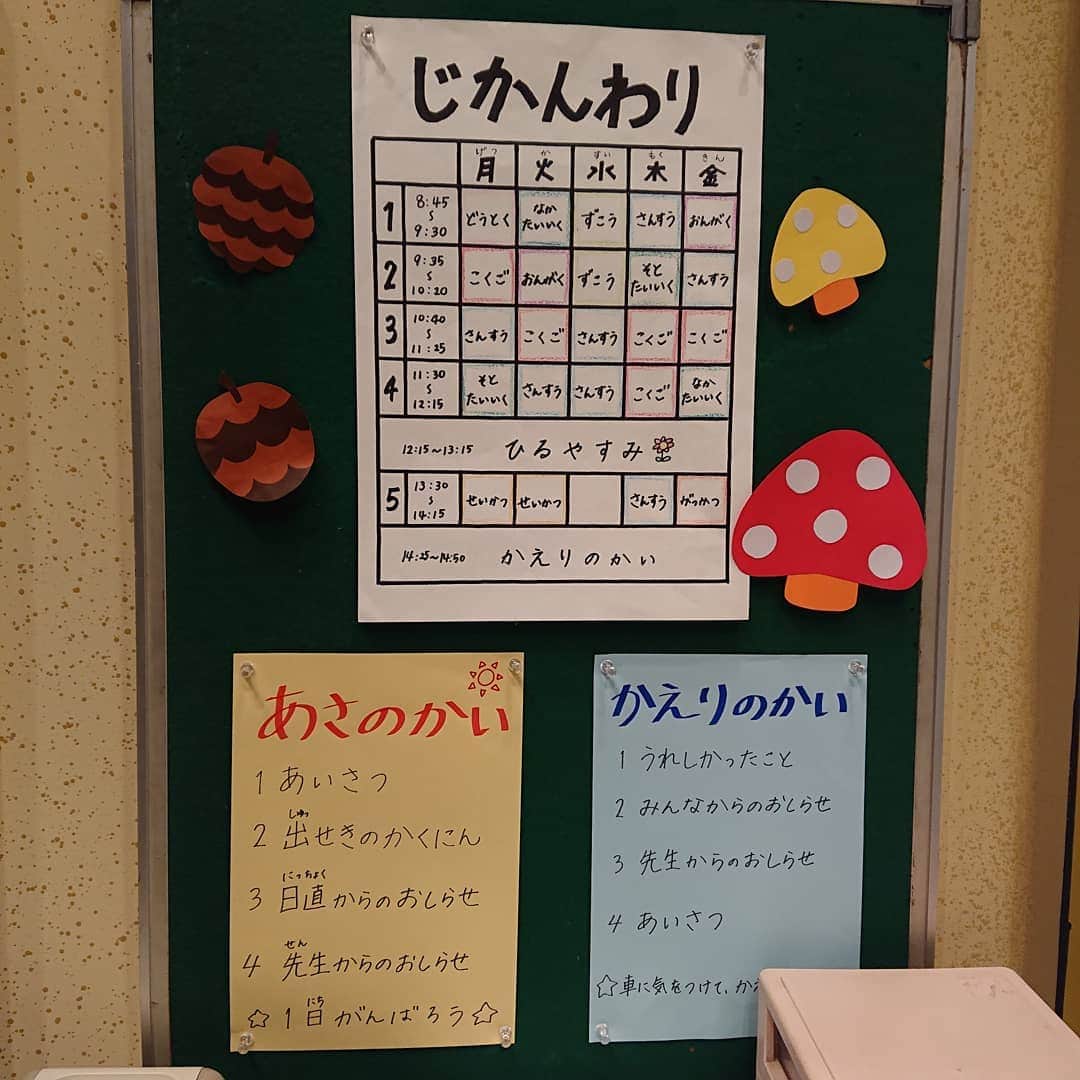 じかんわり
げつ か すい もく きん
月 火 水 木 金
1 8:45〜9:30 どうとく なかたいいく ずこう さんすう おんがく
2 9:35〜10:20 こくご おんがく ずこう そとたいいく さんすう
3 10:40〜11:25 さんすう こくご さんすう こくご こくご
4 11:30〜12:15 そとたいいく さんすう さんすう こくご なかたいいく
12:15〜13:15 ひるやすみ
5 13:30〜14:15 せいかつ せいかつ さんすう がっかつ
14:25〜14:50 かえりのかい
あさのかい
1 あいさつ
しゅっ
2 出せきのかくにん
にっちょく
3 日直からのおしらせ
せん
4 先生からのおしらせ
にち
☆1日がんばろう☆
かえりのかい
1 うれしかったこと
2 みんなからのおしらせ
3 先生からのおしらせ
4 あいさつ
☆車に気をつけて、かえ